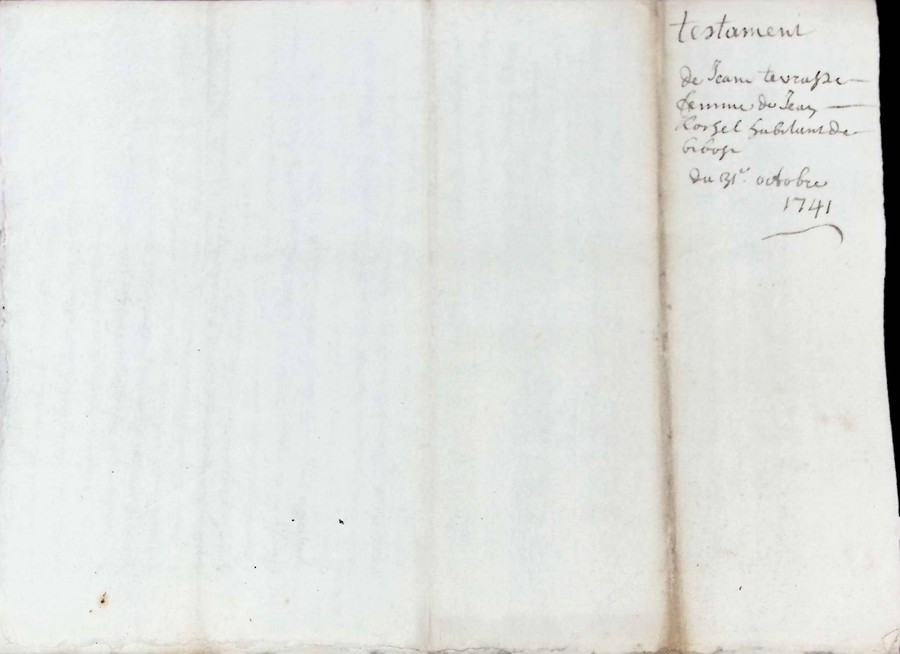 testament
de Jeane terrasse
femme de Jean
habitant de
du 31e octobre
1741